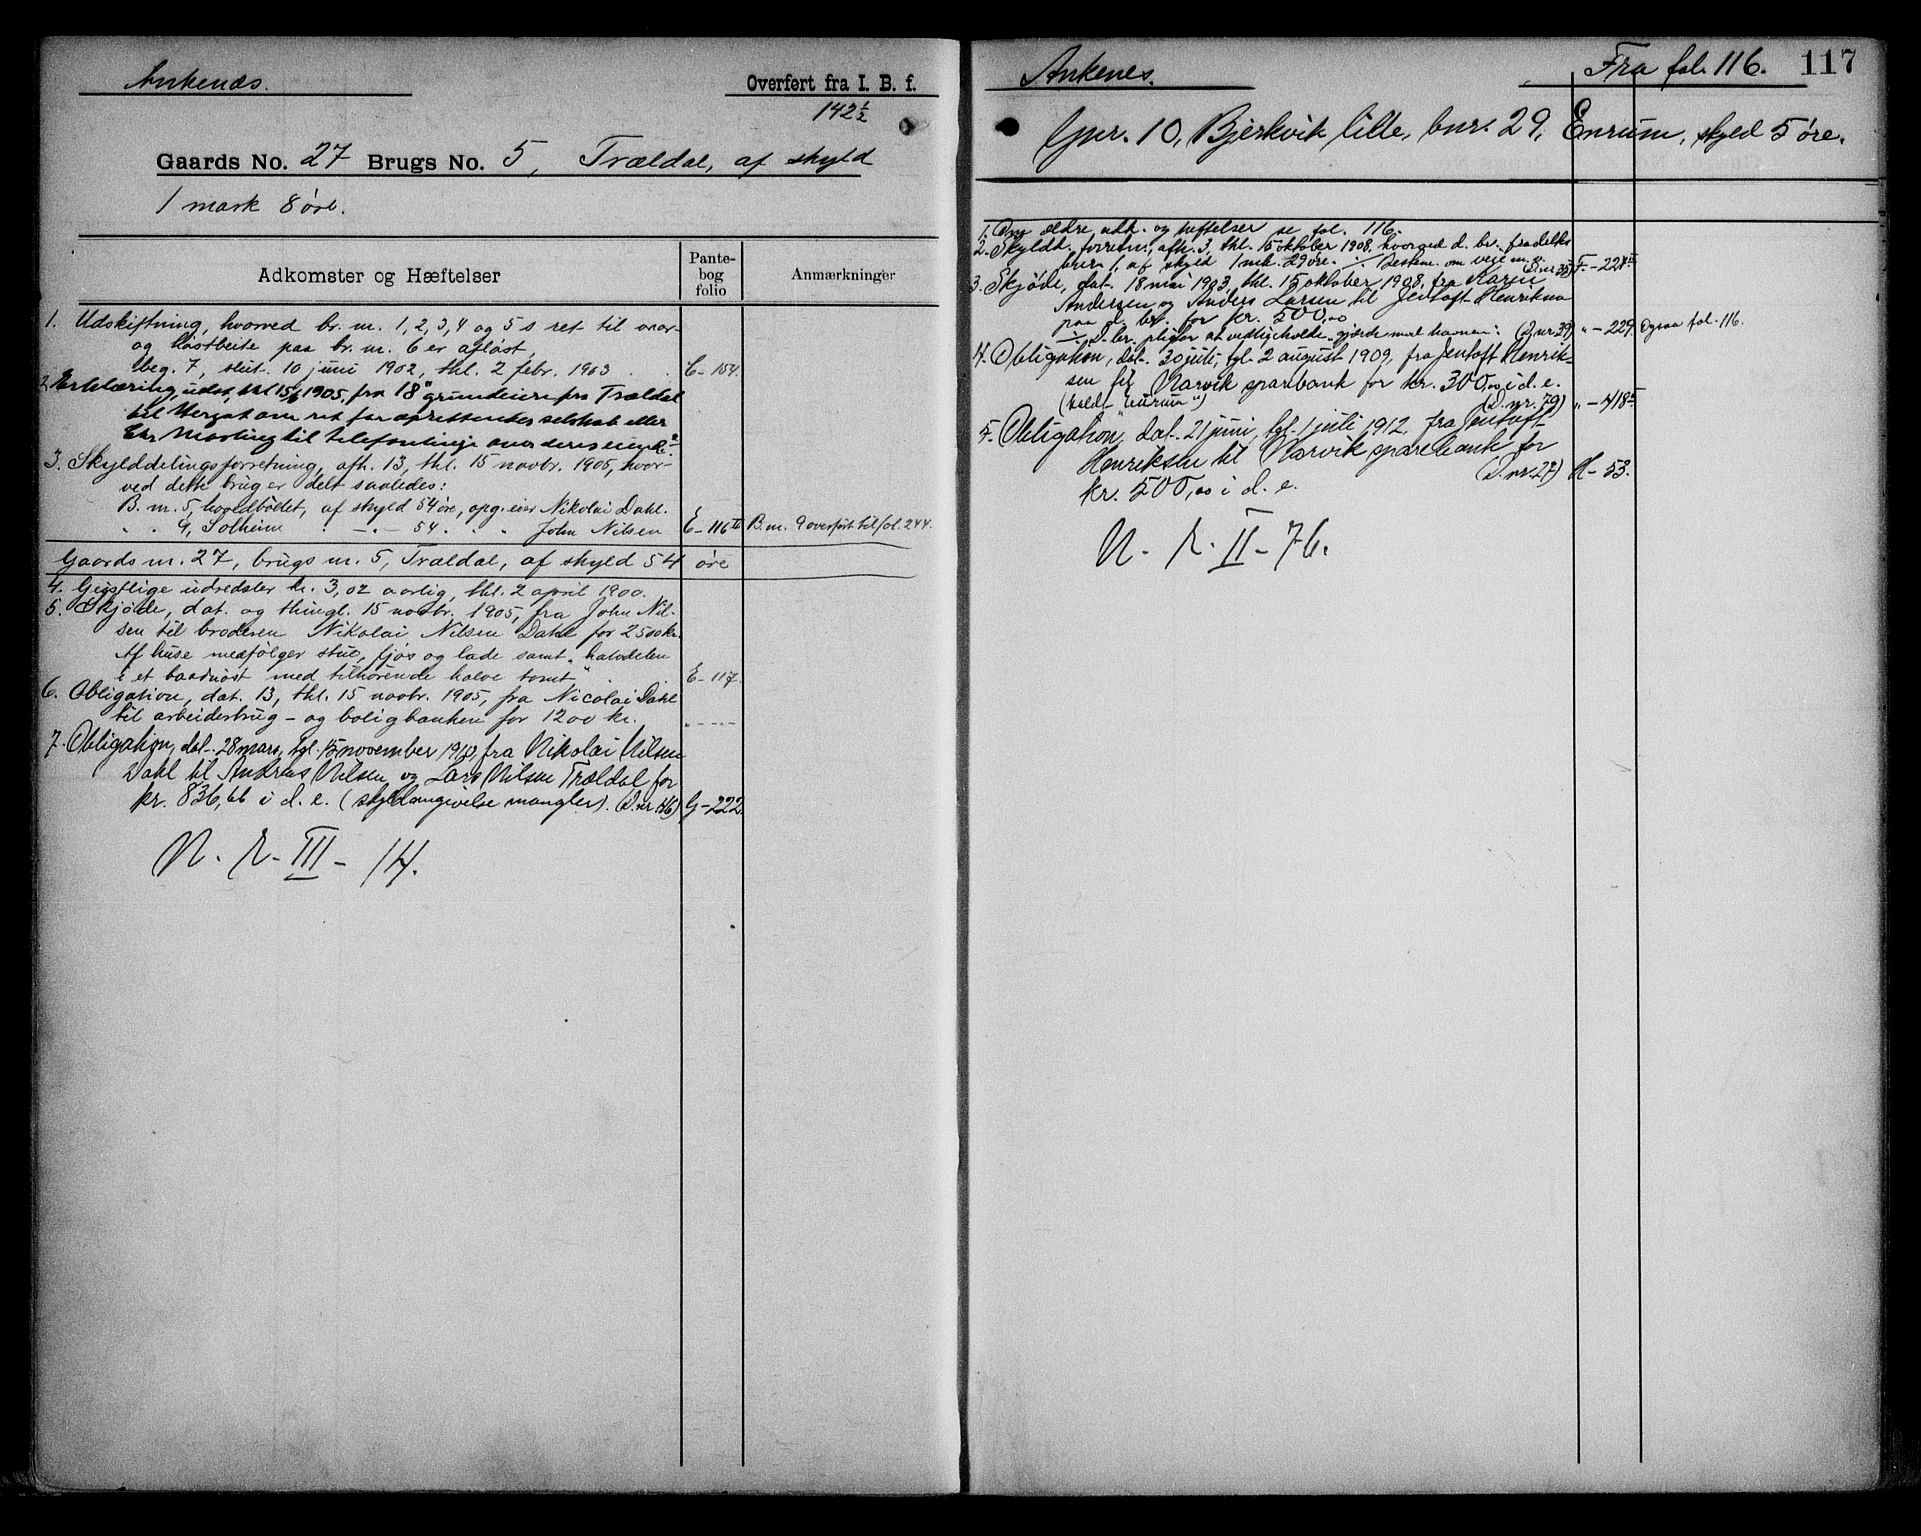 Ankenæs.
Overført fra I. B. f.
142½
Gaards No. 27 Brugs No. 5, Trældal, af skyld
1 mark 8 øre.
Adkomster og Hæftelser
Pante-
bog
folio
Anmærkninger
1. Udskiftning, hvorved br. nr. 1, 2, 3, 4 og 5 s ret til vaar-
og høstbeite paa br. nr. 6 er afløst,
beg. 7, slut. 10 juni 1902, thl. 2 febr. 1903 . . E - 154.
2. Erklæring, udst, thl 15/6 1905, fra 18 grundeiere fra Trældal
til om ret for oprettendes selskab eller
Chr Morting til telefonlinje over deres eiend
3. Skylddelingsforretning, afh. 13, thl. 15 novbr. 1905, hvor-
ved dette brug er delt saaledes:
B. nr. 5, hovedbølet, af skyld 54 øre, opg. eier Nikolai Dahl.
" " 9, Solheim " - " - 54 " " John Nilsen E - 116 B. nr. 9 overført til fol. 244.
Gaards nr. 27, brugs nr. 5, Trældal, af skyld 54 øre
4. Geistlige udredsler kr. 3,02 aarlig, thl. 2 april 1900.
5. Skjøde, dat. og thingl. 15 novbr. 1905, fra John Nil-
sen til broderen Nikolai Nilsen Dahl for 2500 kr.
Af huse medfølger stue, fjøs og lade samt "halvdelen
i et baadnøst med tilhørende halve tomt" . . E - 117.
6. Obligation, dat. 13, thl. 15 novbr. 1905, fra Nicolai Dahl
til arbeiderbrug - og boligbanken for 1200 kr. " - - - -
7. Obligation, dat. 28 mars, tgl. 15 november 1910, fra Nikolai Nilsen
Dahl til Andreas Nilsen og Lars Nilsen Trældal for
kr. 836,66 i d. e. (skyldangivelse mangler). (D. nr. 46) G - 222.
N. R. - III - 14.
Ankenes.
Fra fol. 116. 117
Gnr. 10, Bjerkvik lille, bnr. 29, Enrum, skyld 5 øre.
1. Om ældre adk. og heftelser se fol. 116.
2. Skyldd. forretn., afh. 3, thl. 15 oktober 1908, hvorved d. br. fradelks
bnr. 1, af skyld 1 mk. 29 øre. Bestem. om veje m. v. (D. nr. 35) F. - 227
3. Skjøde, dat. 18 mai 1903, thl. 15 oktober 1908, fra Karen
Andersen og Anders Larsen til Jentoft Henriksen
paa d. br. for kr. 500,00
D. br. pligter at vedligeholde gjerde mod havnen. (D. nr. 39) " - 229. Ogsaa fol. 116.
4. Obligation, dat. 30 juli, tgl. 2 august 1909, fra Jentoft Henrik-
sen til Narvik sparebank for kr. 300,00 i d. e.
(kaldt "Enrum") (D. nr. 79) " - 418
5. Obligation, dat. 21 juni, tgl. 1 juli 1912, fra Jentoft
Henriksen til Narvik sparebank for
kr. 500,00 i d. e. (D. nr. 27) H - 53.
N. R. II - 76.